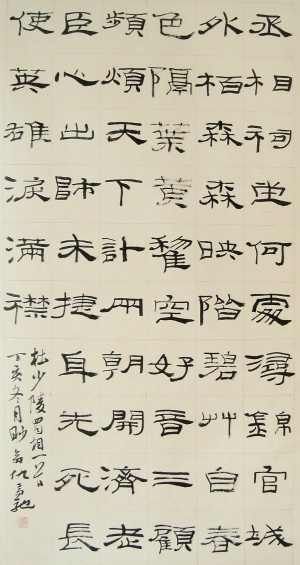 丞相祠堂何處尋錦官城
外栢森森映階碧艸自春
色隔葉黃鸝空好音三顧
頻煩天下計兩朝開濟老
臣心出師未捷身先死長
使英雄淚滿襟
杜少陵蜀相一首
丁亥冬月